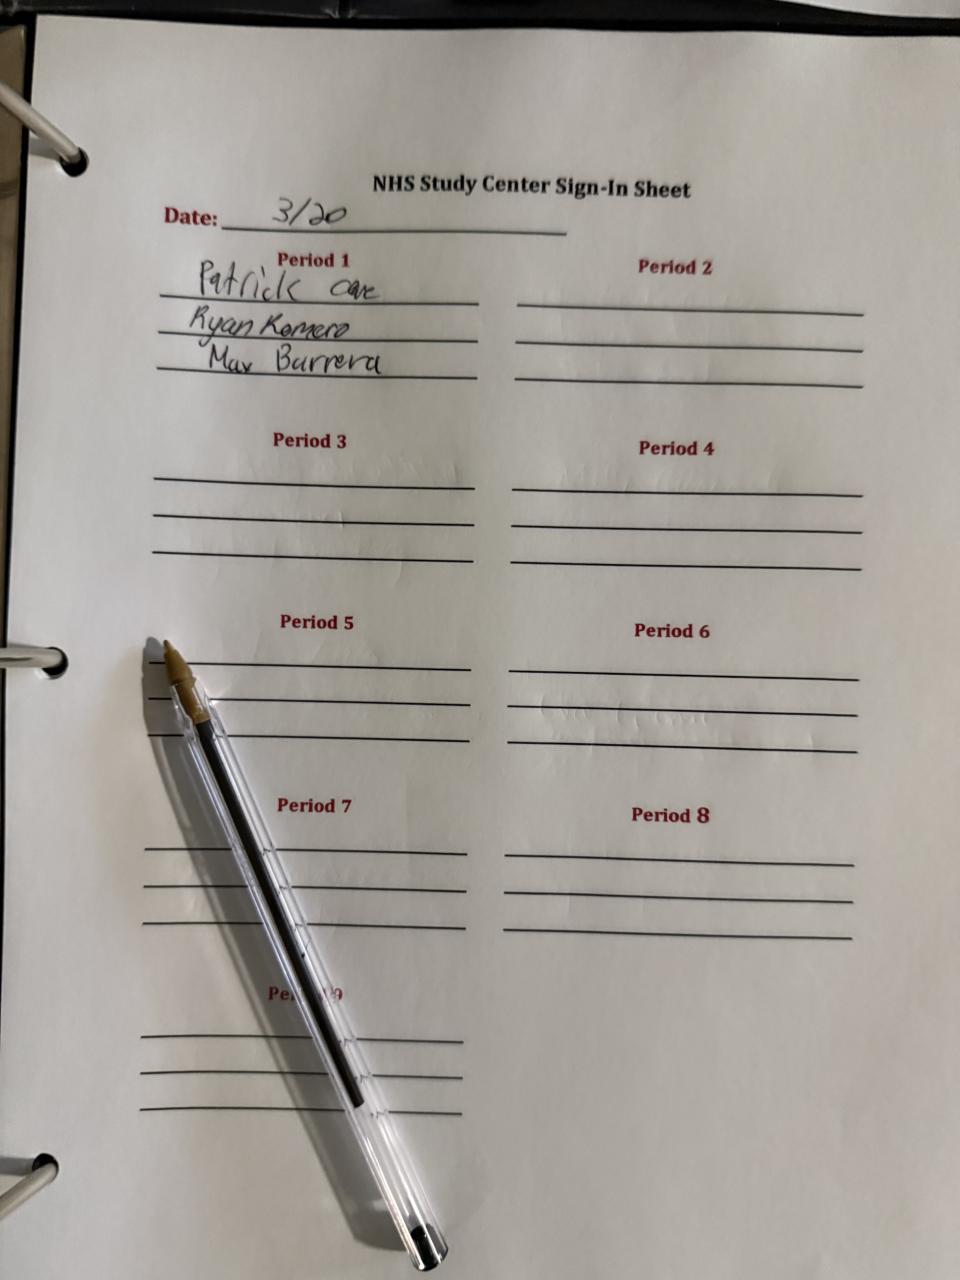 NHS Study Center Sign-In Sheet
Date: 3/20
Period 1
Patrick
Ryan Romero
Max Barrera
Period 2
Period 3
Period 4
Period 5
Period 6
Period 7
Period 8